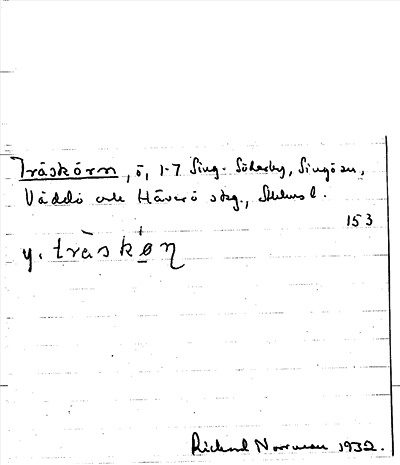 Träskörn, ö, 1-7 Sing. Söderby, Singö sn,
Väddö och Häverö skg., Sthlms l.
153
y. träskøn
Rickard Norrman 1932.